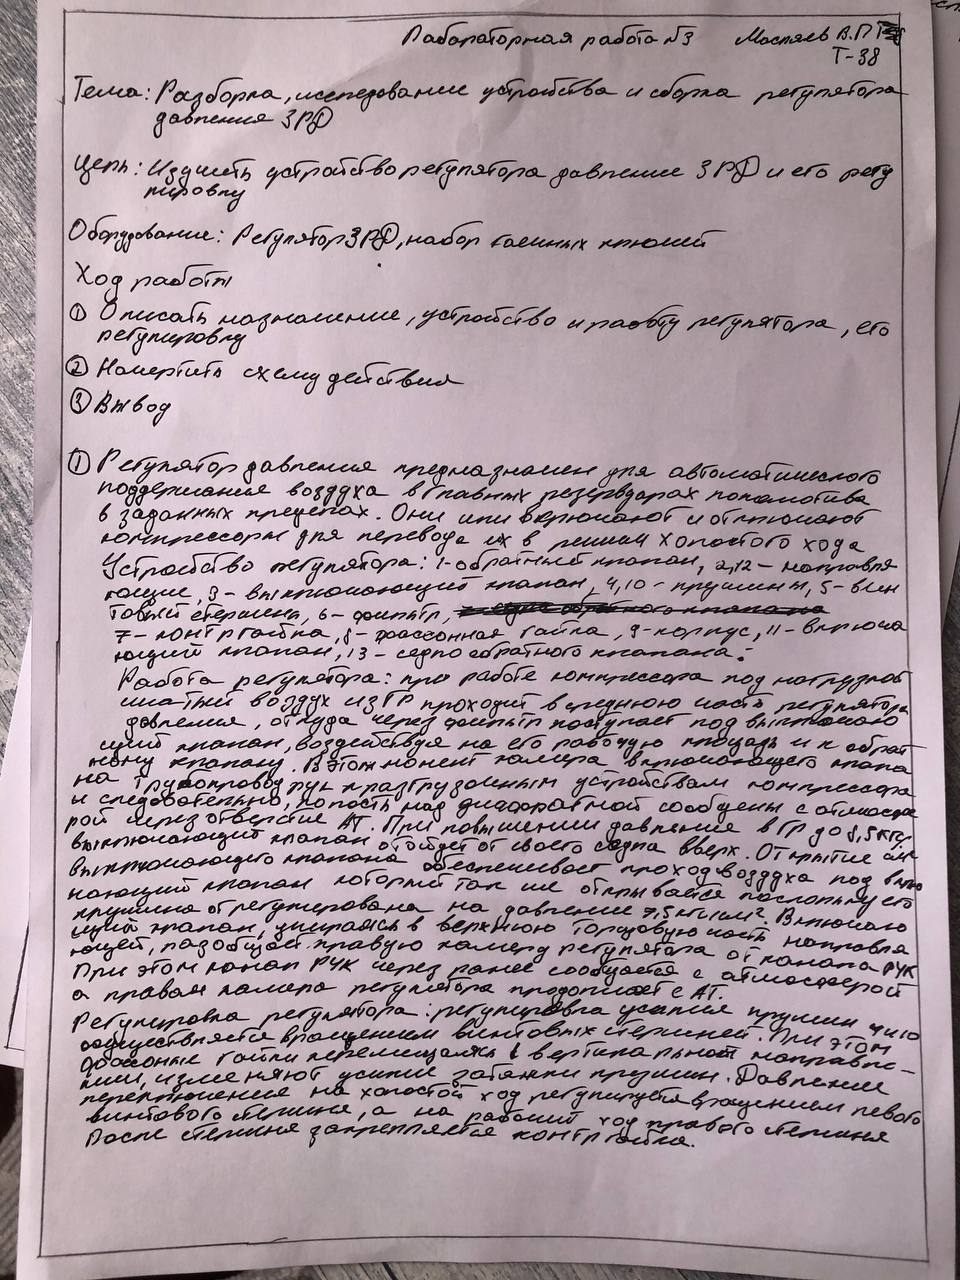 Лабораторная работа №3 Маспяев В.П
Т-38
Тема: Разборка, исследование устройства и сборка регулятора
давления 3РД
Цель: Изучить устройство регулятора давление 3РД и его регу
лировку
Оборудование: Регулятор 3РД, набор гаечных ключей
Ход работы
① Описать назначение, устройство и работу регулятора, его
регулировку
② Начертить схему действия
③ Вывод
① Регулятор давления предназначен для автоматического
поддержания воздуха в главных резервуарах локомотива
в заданных пределах. Они или включают и отключают
компрессоры для перевода их в режим холостого хода
Устройство регулятора: 1-обратный клапан, 2,12 - направля
ющие, 3 - выключающий клапан, 4,10 - пружины, 5 - вин
товый стержень, 6 - фильтр,
7 - контргайка, 8 - фассонная гайка, 9 - корпус, 11 - включа
ющий клапан, 13 - седло обратного клапана.
Работа регулятора: при работе компрессора под нагрузкой
сжатый воздух из ГР проходит в среднюю часть регулятора
давления, откуда через фильтр поступает под выключаю
щий клапан, воздействуя на его рабочую площадь и к обрат
ному клапану. В этом момент камера включающего клапа
на трубопровод к разгрузочным устройствам компрессора
и следовательно, полость над диафрагмой сообщены с атмосфе
рой через отверстие АТ. При повышении давление в ГР до 8,5 кгс/
выключающий клапан отойдет от своего седла вверх. Открытие
выключающего клапана обеспечивает проход воздуха под вклю
чающий клапан который так же открывается поскольку его
пружина отрегулирована на давление 7,5 кгс/см². Включаю
щий клапан, упираясь в верхнюю торцовую часть направля
ющей, разобщает правую камеру регулятора от канала РУК
При этом канал РУК через ранее сообщается с атмосферой
а правая камера регулятора продолжает с АТ.
Регулировка регулятора: регулировка усилия пружин 4 и 10
осуществляется вращением винтовых стержней. При этом
фассоные гайки перемещаясь в вертикальном направле-
нии, изменяют усилие затяжки пружин. Давление
переключение на холостой ход регулируется вращением левого
винтового стержня, а на рабочий ход правого стержня
После стержня закрепляется контргайка.